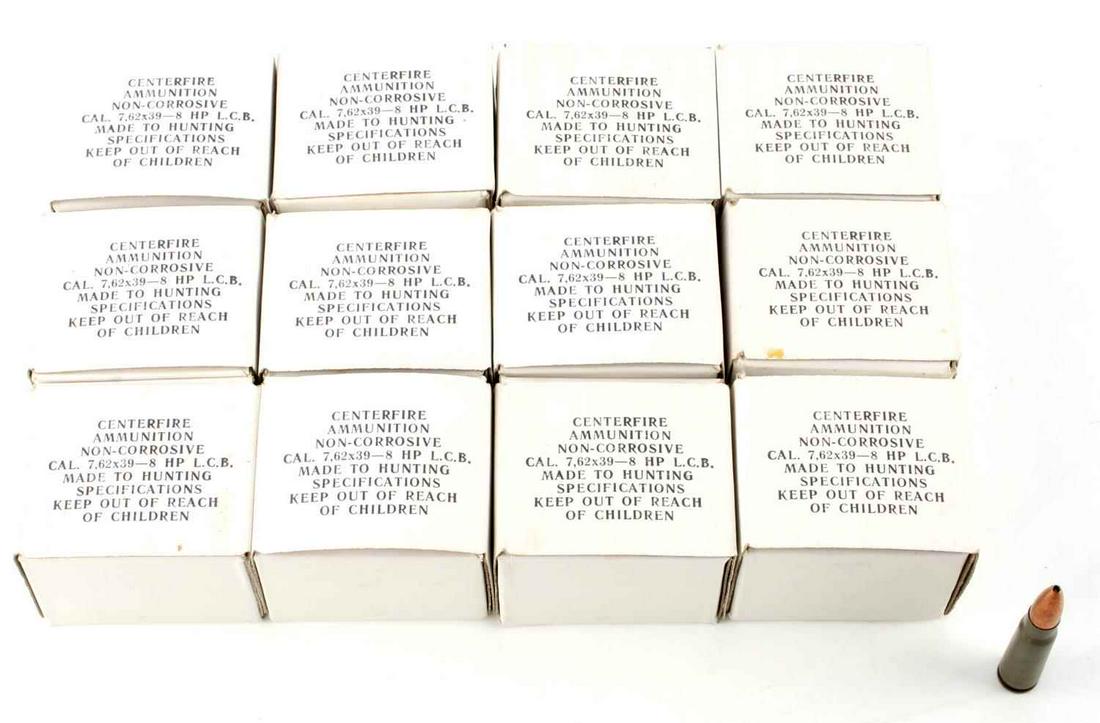 CENTERFIRE
AMMUNITION
NON-CORROSIVE
CAL. 7,62x39—8 HP L.C.B.
MADE TO HUNTING
SPECIFICATIONS
KEEP OUT OF REACH
OF CHILDREN
CENTERFIRE
AMMUNITION
NON-CORROSIVE
CAL. 7,62x39—8 HP L.C.B.
MADE TO HUNTING
SPECIFICATIONS
KEEP OUT OF REACH
OF CHILDREN
CENTERFIRE
AMMUNITION
NON-CORROSIVE
CAL. 7,62x39—8 HP L.C.B.
MADE TO HUNTING
SPECIFICATIONS
KEEP OUT OF REACH
OF CHILDREN
CENTERFIRE
AMMUNITION
NON-CORROSIVE
CAL. 7,62x39—8 HP L.C.B.
MADE TO HUNTING
SPECIFICATIONS
KEEP OUT OF REACH
OF CHILDREN
CENTERFIRE
AMMUNITION
NON-CORROSIVE
CAL. 7,62x39—8 HP L.C.B.
MADE TO HUNTING
SPECIFICATIONS
KEEP OUT OF REACH
OF CHILDREN
CENTERFIRE
AMMUNITION
NON-CORROSIVE
CAL. 7,62x39—8 HP L.C.B.
MADE TO HUNTING
SPECIFICATIONS
KEEP OUT OF REACH
OF CHILDREN
CENTERFIRE
AMMUNITION
NON-CORROSIVE
CAL. 7,62x39—8 HP L.C.B.
MADE TO HUNTING
SPECIFICATIONS
KEEP OUT OF REACH
OF CHILDREN
CENTERFIRE
AMMUNITION
NON-CORROSIVE
CAL. 7,62x39—8 HP L.C.B.
MADE TO HUNTING
SPECIFICATIONS
KEEP OUT OF REACH
OF CHILDREN
CENTERFIRE
AMMUNITION
NON-CORROSIVE
CAL. 7,62x39—8 HP L.C.B.
MADE TO HUNTING
SPECIFICATIONS
KEEP OUT OF REACH
OF CHILDREN
CENTERFIRE
AMMUNITION
NON-CORROSIVE
CAL. 7,62x39—8 HP L.C.B.
MADE TO HUNTING
SPECIFICATIONS
KEEP OUT OF REACH
OF CHILDREN
CENTERFIRE
AMMUNITION
NON-CORROSIVE
CAL. 7,62x39—8 HP L.C.B.
MADE TO HUNTING
SPECIFICATIONS
KEEP OUT OF REACH
OF CHILDREN
CENTERFIRE
AMMUNITION
NON-CORROSIVE
CAL. 7,62x39—8 HP L.C.B.
MADE TO HUNTING
SPECIFICATIONS
KEEP OUT OF REACH
OF CHILDREN